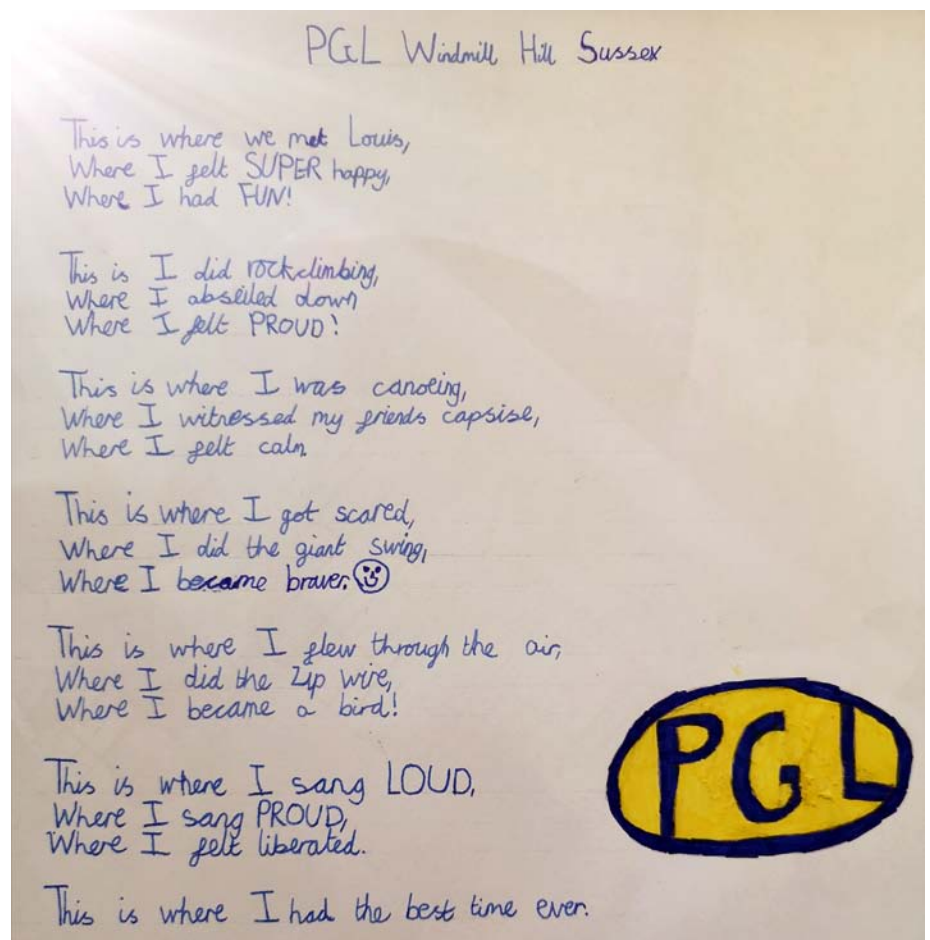 PGL Windmill Hill Sussex
This is where we met Louis,
Where I felt SUPER happy,
Where I had FUN!
This is I did rockclimbing,
Where I abseiled down
Where I felt PROUD!
This is where I was canoeing,
Where I witnessed my friends capsise,
Where I felt calm.
This is where I got scared,
Where I did the giant swing,
Where I became braver.
This is where I flew through the air,
Where I did the Zip wire,
Where I became a bird!
This is where I sang LOUD,
Where I sang PROUD,
Where I felt liberated.
PGL
This is where I had the best time ever.